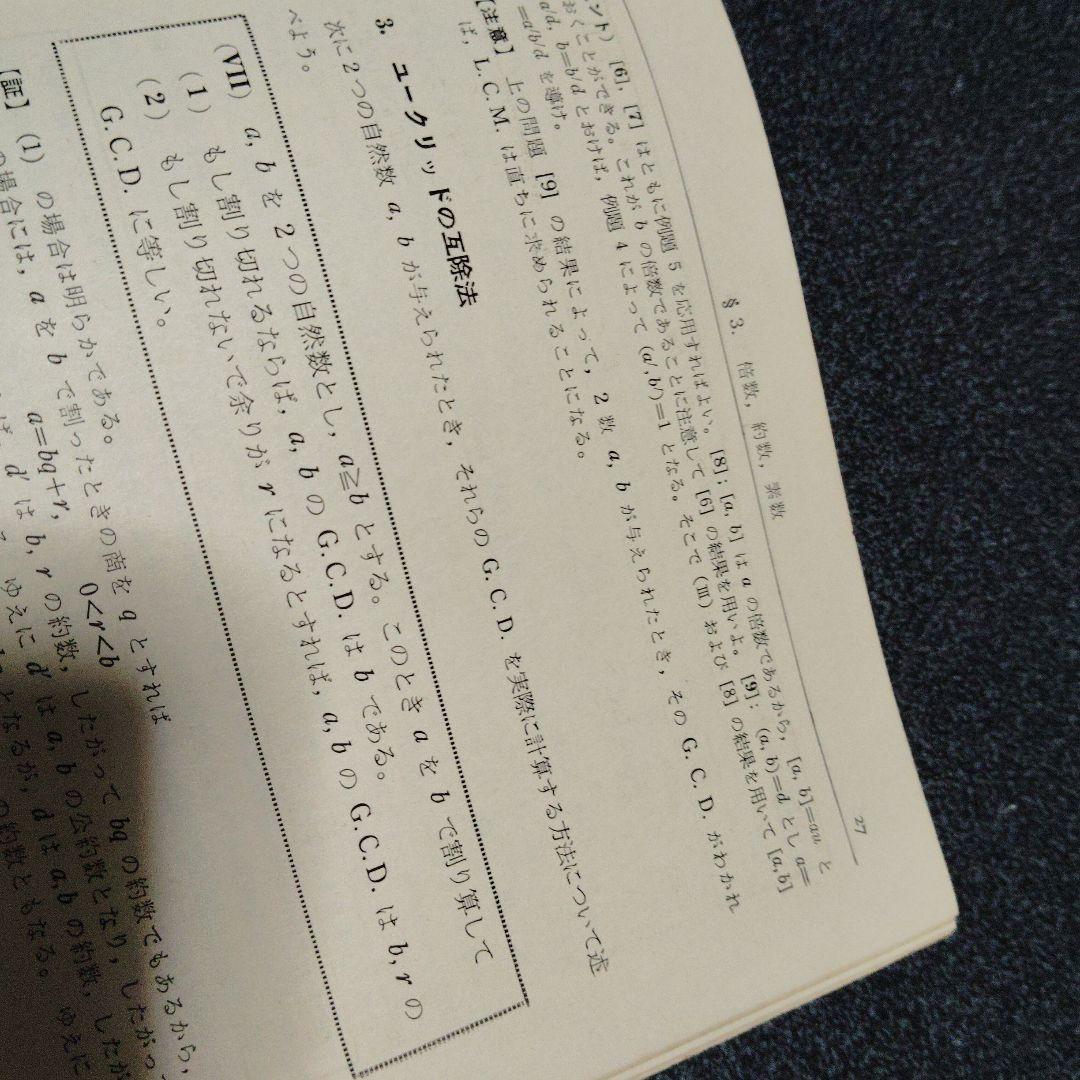 §3. 倍数，約数，素数 27
ント） [6]，[7] はともに例題 5 を応用すればよい。 [8]；[a, b] は a の倍数であるから，[a, b]=au と
おくことができる。これが b の倍数であることに注意して [6] の結果を用いよ。 [9]；(a, b)=d とし a=
a'd, b=b'd とおけば，例題 4 によって (a',b')=1 となる。そこで (Ⅲ) および [8] の結果を用いて [a,b]
=a'b'd を導け。
【注意】 上の問題 [9] の結果によって，2 数 a, b が与えられたとき，その G. C. D. がわかれ
ば，L. C. M. は直ちに求められることになる。
3. ユークリッドの互除法
次に 2 つの自然数 a, b が与えられたとき，それらの G. C. D. を実際に計算する方法について述
べよう。
(VII) a, b を 2 つの自然数とし，a≧b とする。このとき a を b で割り算して
(1) もし割り切れるならば，a, b の G.C.D. は b である。
(2) もし割り切れないで余りが r になるとすれば，a, b の G.C.D. は b, r の
G.C.D. に等しい。
【証】 (1) の場合は明らかである。
の場合には，a を b で割ったときの商を q とすれば
a=bq+r, 0<r<b
d は b, r の約数，したがって bq の約数でもあるから，
ゆえに d は a, b の公約数となり，したがっ
となるが，d は a, b の約数，したが
の約数ともなる。 ゆえに